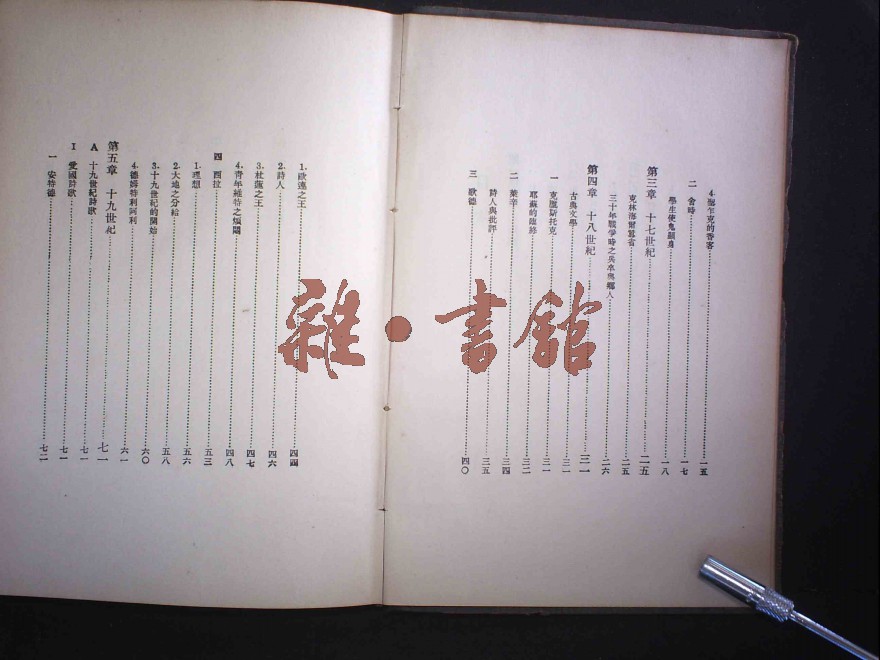 4. 福乍克的香客……一五
二 舍時……一七
學生使鬼顯身……一八
第三章 十七世紀……二五
克林海爾蠶省……二五
三十年戰爭時之兵卒與鄉人……二六
第四章 十八世紀……三一
古典文學……三一
一 克盧斯托克……三一
耶蘇的臨終……三二
二 萊辛……三四
詩人與批評……三五
三 歌德……四〇
1. 歐連之王……四四
2. 詩人……四六
3. 杖薩之王……四七
4. 青年維特之煩悶……四八
四 西拉……五三
1. 理想……五六
2. 大地之分給……五八
3. 十九世紀的開始……六〇
4. 德姆特利阿利……六一
第五章 十九世紀……七一
A 十九世紀詩歌……七一
I 愛國詩歌……七一
一 安特德……七二
雜·書館